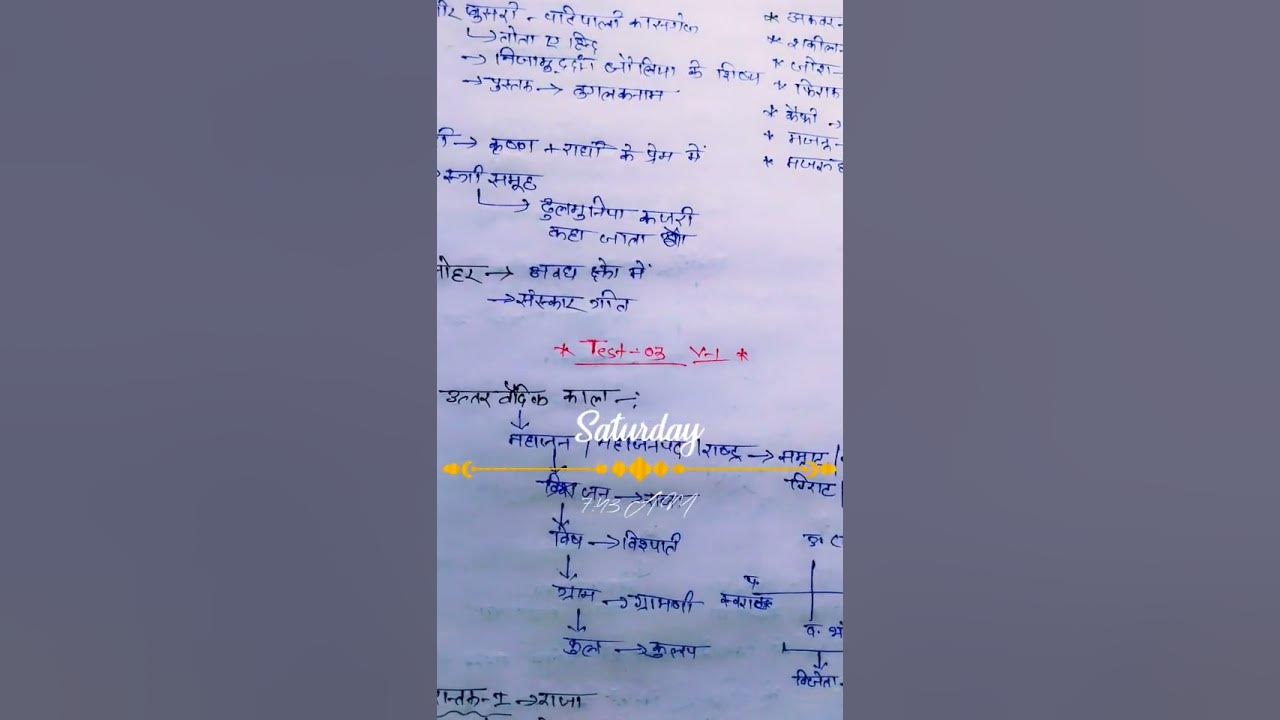 खुसरो - पटियाली कासगंज
तोता ए हिन्द
→ निजामुद्दीन औलिया के शिष्य
→ पुस्तक → तुगलकनामा
→ कृष्ण + राधा के प्रेम में
→ स्त्री समूह
ढुलमुनिया कजरी
कहा जाता है
→ अवध क्षे० में
→ संस्कार गीत
* Test-03 V-1 *
उत्तर वैदिक काल -:
महाजन / महाजनपद / राष्ट्र → सम्राट /
विराट /
Saturday
जन →
7:43 AM
विष → विशपति
ग्राम → ग्रामणी
कुल → कुलप
राजा
* अकबर-
* शकील-
* जोश-
* फिराक
* कैफी →
* मजाज-
* मजरूह
प.
स्वराट
विजेता-